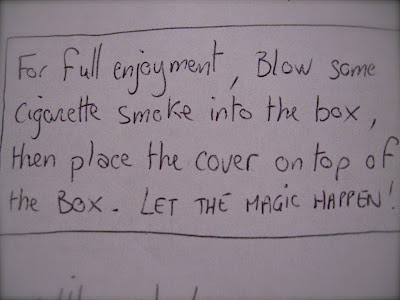 For full enjoyment, Blow some
cigarette smoke into the box,
then place the cover on top of
the Box. LET THE MAGIC HAPPEN!